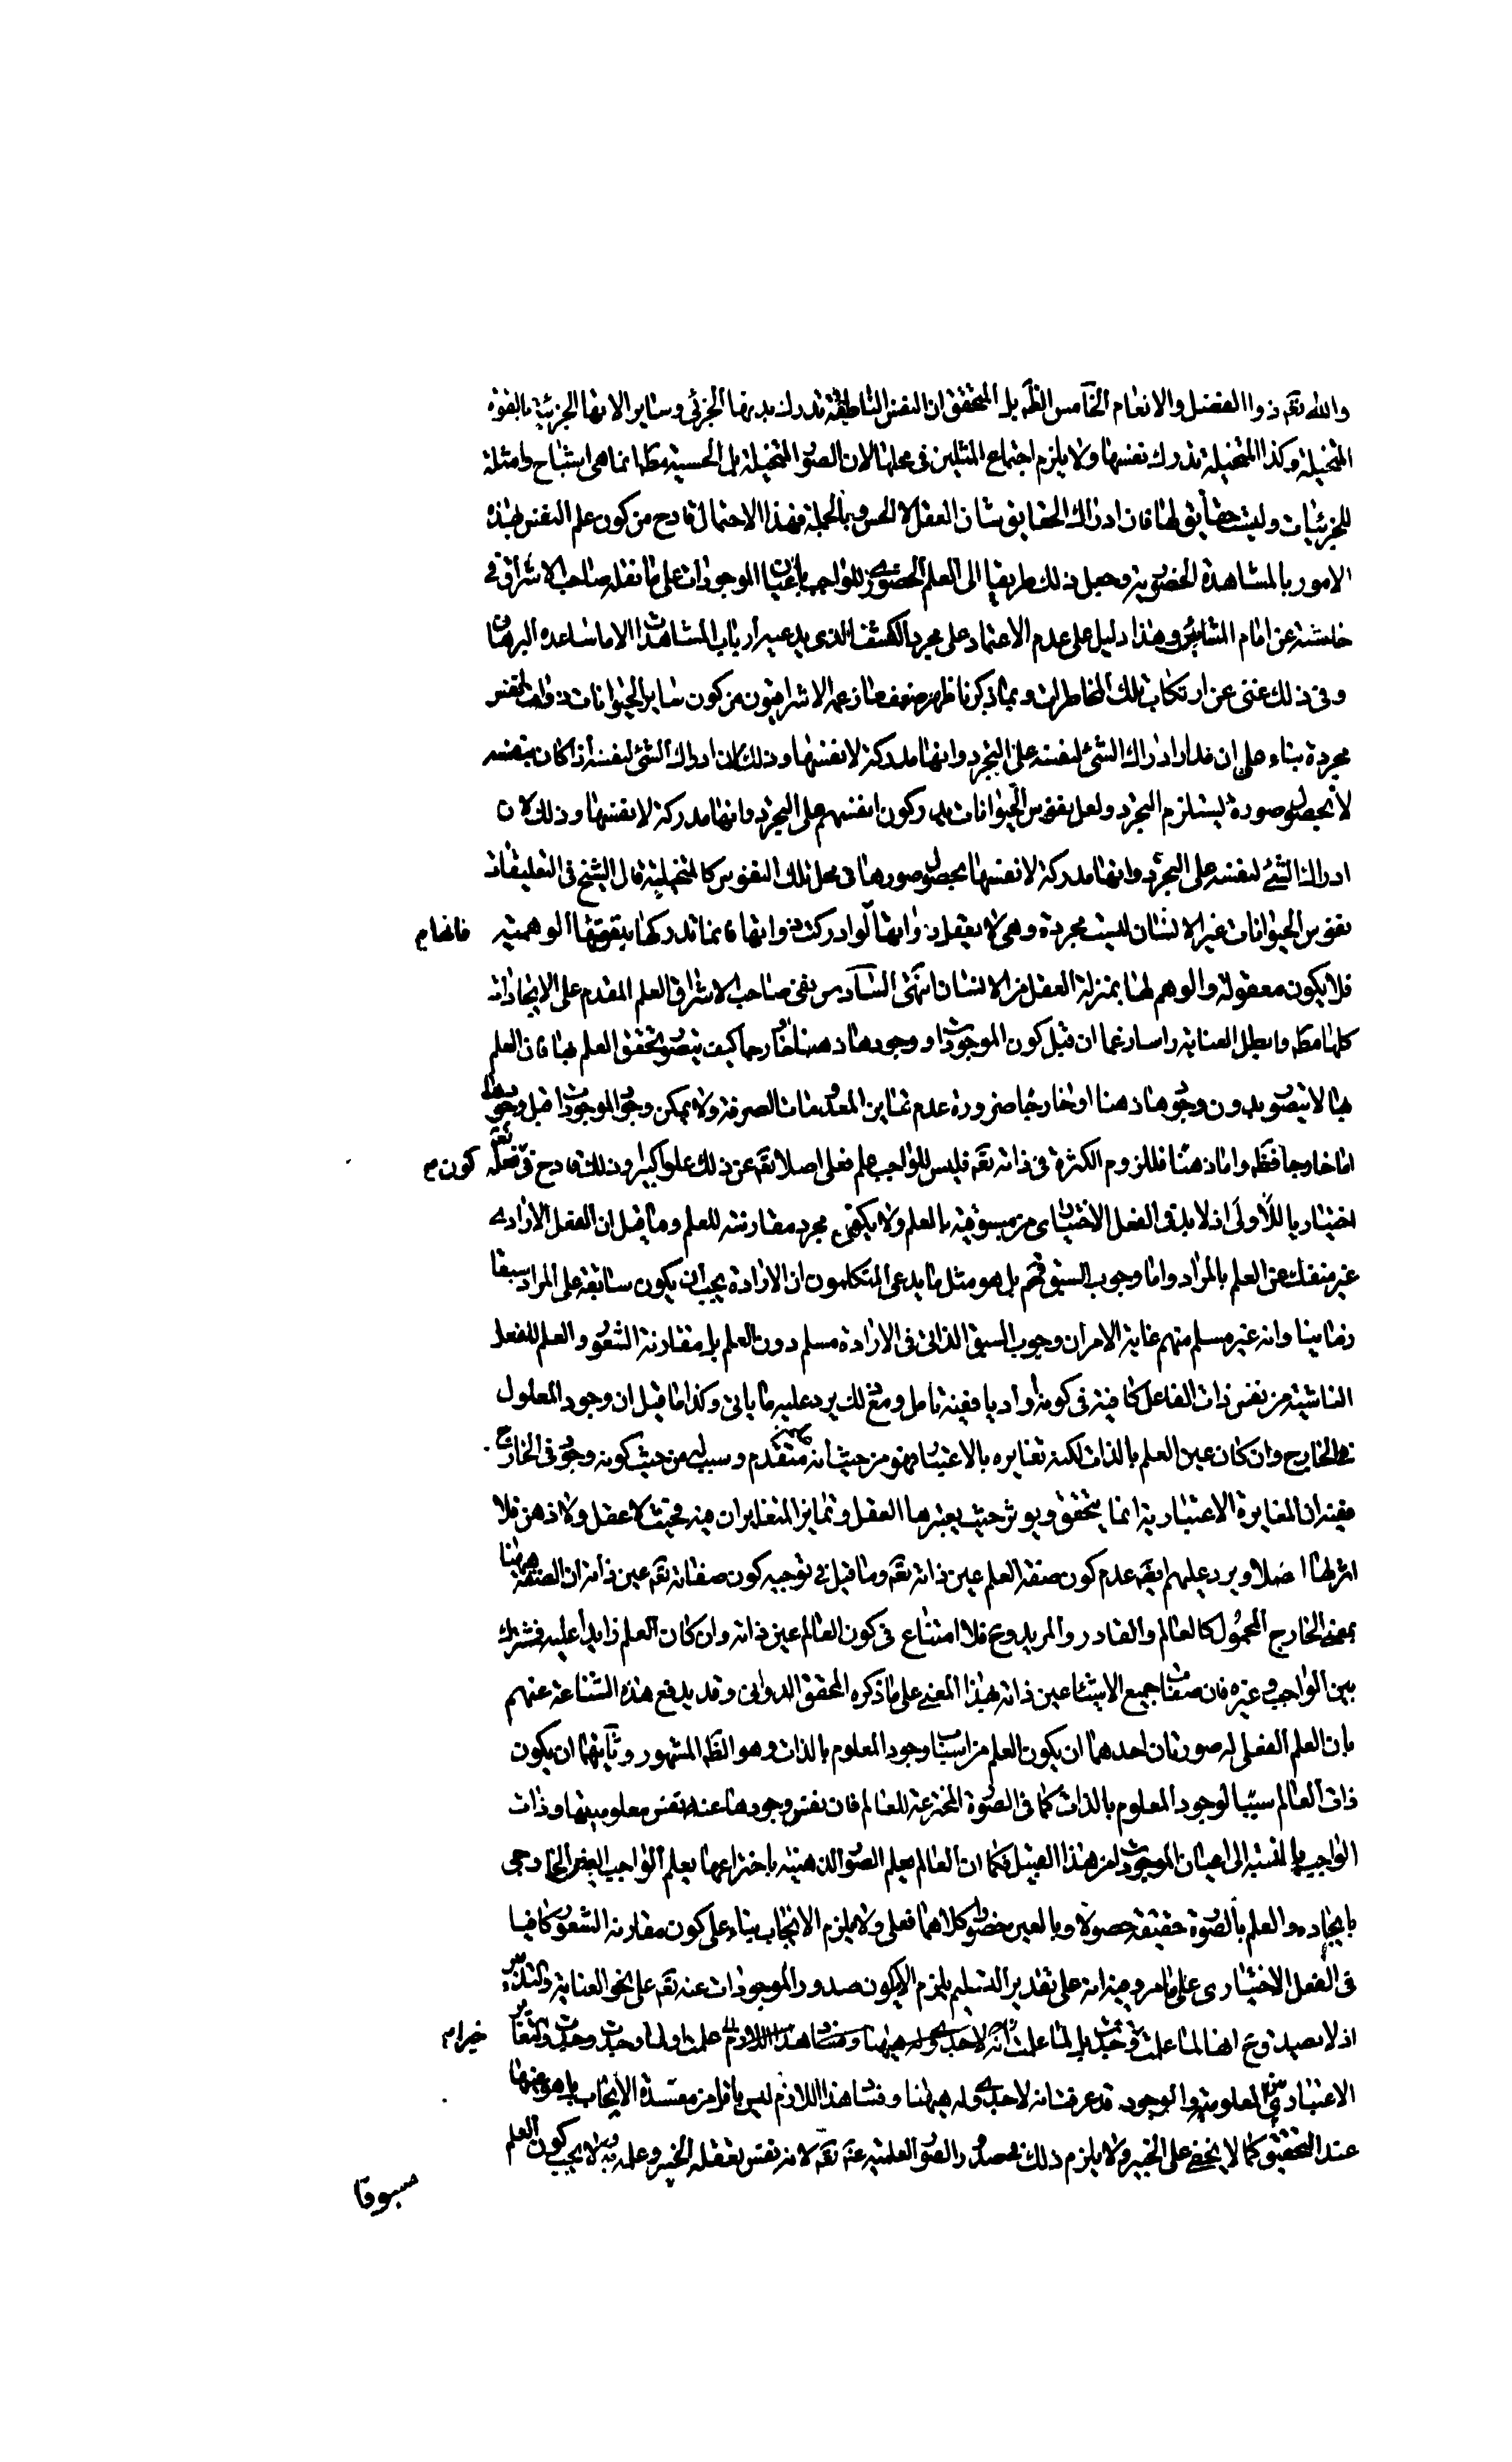 والله تقه ذوا الفضل والانعام الخامس الظه بل المتحقق ان النفس الناطقة تدرك بدنها الجزئى وساير الاتها الجزئية بالقوة
المتخيلة وكذا المتخيلة تدرك نفسها ولا يلزم اجتماع المثلين فى محلها لان الصو المتخيلة بل الحسية مطلها انما هى اشباح وامثلة
للجزئيات وليست حقايق لها فان ادراك الحقايق شان العقل لا الحس وبالجملة فهذا الاحتمال قادح من كون علم النفس بهذه
الامور بالمشاهدة الحضورية وجعل ذلك طريقا الى العلم الحضورى للواجب باعيان الموجودات على ما نقله صاحب الاشراق فى
خلسته عن امام المشايين وهذا دليل على عدم الاعتماد على مجرد الكشف الذى يدعيه ارباب المشاهدات الا ما ساعده البرهان
وفى ذلك غنى عن ارتكاب تلك المخاطرات وبما ذكرنا ظهر ضعف ما زعمه الاشراقيون من كون ساير الحيوانات ذوات نفس
مجردة بناء على ان مدار ادراك الشئ لنفسه على التجرد وانها مدركة لانفسها وذلك لان ادراك الشئ لنفسه اذا كان بنفسه
لا بحصول صورة يستلزم التجرد ولعل نفوس الحيوانات يدركون انفسهم على التجرد وانها مدركة لانفسها وذلك لان
ادراك الشئ لنفسه على التجرد وانها مدركة لانفسها بحصول صورها فى محل تلك النفوس كالمتخيلة قال الشيخ فى التعليقات
نفوس الحيوانات غير الانسان ليست مجردة وهى لا يعقل ذواتها لو ادركت ذواتها فانما تدركها بقوتها الوهمية فانها م
فلا يكون معقولة والوهم لها بمنزلة العقل من الانسان انتهى السادس نفى صاحب الاشراق العلم المقدم على الايجادات
كلها مطه وابطل العناية راسا زعما ان قبل كون الموجودات او وجودها ذهنا خارجا كيف يتصور تحقق العلم بها فان العلم
بها لا يتصور بدون وجودها ذهنا او خارجا ضرورة عدم تمايز المعدومات الصرفة ولا يمكن وجود الموجودات قبل وجودها
اما خارجا فظه واما ذهنا فللزوم الكثرة فى ذاته تقه فليس للواجب علم فعلى اصلا تقه عن ذلك علوا كبيرا وذلك قادح فى فعله تقه كون م
اختياريا للاولى اذ لا بد فى الفعل الاختيارى من مسبوقيته بالعلم ولا يكفى مجرد مقارنته للعلم وما قيل ان الفعل الارادى
غير منفك عن العلم بالمراد واما وجوب السبق فهم بل هو مثل ما يدعى المتكلمون ان الارادة يجب ان يكون سابقة على المراد سبقا
زمانيا وانه غير مسلم منهم غاية الامر ان وجوب السبق الذاتى فى الارادة مسلم دون العلم بل مقارنة الشعور والعلم للفعل
الناشية من نفس ذات الفاعل كافية فى كونه اراديا ففيه تامل ومع ذلك يرد عليه ما ياتى وكذا ما قيل ان وجود المعلول
فى الخارج وان كان عين العلم بالذات لكنه تغايره بالاعتبار فهو من حيث انه علم متقدم وسبب له من حيث كونه وجود فى الخارج
ففيه ان المغايرة الاعتبارية انما يتحقق ويوثر حيث يعتبرها العقل وتمايز المتغايران فيه فحيث لا عقل ولا ذهن فلا
اثر لها اصلا ويرد عليهم ايضه عدم كون صفة العلم عين ذاته تقه وما قيل فى توجيه كون صفاته تقه عين ذاته ان الصفة ههنا
بمعنى الخارج المحمول كالعالم والقادر والمريد وح فلا امتناع فى كون العالم عين ذاته وان كان العلم زايدا عليه فمشترك
بين الواجب وغيره فان صفات جميع الاشياء عين ذاته بهذا المعنى على ما ذكره المحقق الدوانى وقد يدفع هذه الشناعة عنهم
بان العلم الفعلى له صورتان احدهما ان يكون العلم من اسباب وجود المعلوم بالذات وهو الظه المشهور وثانيهما ان يكون
ذات العالم سببا لوجود المعلوم بالذات كما فى الصورة المخترعة للعالم فان نفس وجودها عنه نفس معلوميتها وذات
الواجب بالنسبة الى اعيان الموجودات من هذا القبيل فكما ان العالم يعلم الصو الذهنية باختراعها يعلم الواجب العين الخارجى
بايجاده والعلم بالصورة حقيقة حصولا وبالعين حضورا وكلاهما فعلى ولا يلزم الايجاب بناء على كون مقارنة الشعور كافيا
فى الفعل الاختيارى على ما مر وفيه انه على تقدير التسليم يلزم ان لا يكون صدور الموجودات عنه تقه على نحو العناية والتدبير
اذ لا يصدق ح انها لما علمت خيرا م وجدت بل لما علمت وجدت ولما وجدت علمت والتغاير
الاعتبارى بين المعلومية والوجود قد عرفت انه لا جدوى له ههنا وفساد هذا اللازم ليس باقل من مفسدة الايجاب بل هو عينها
عند التحقيق كما لا يخفى على الخبير ولا يلزم ذلك فى صدور الصو العلمية عنه تقه لانه نفس تعقله الخير وعلمه به ولا يجب كون العلم
مسبوقا